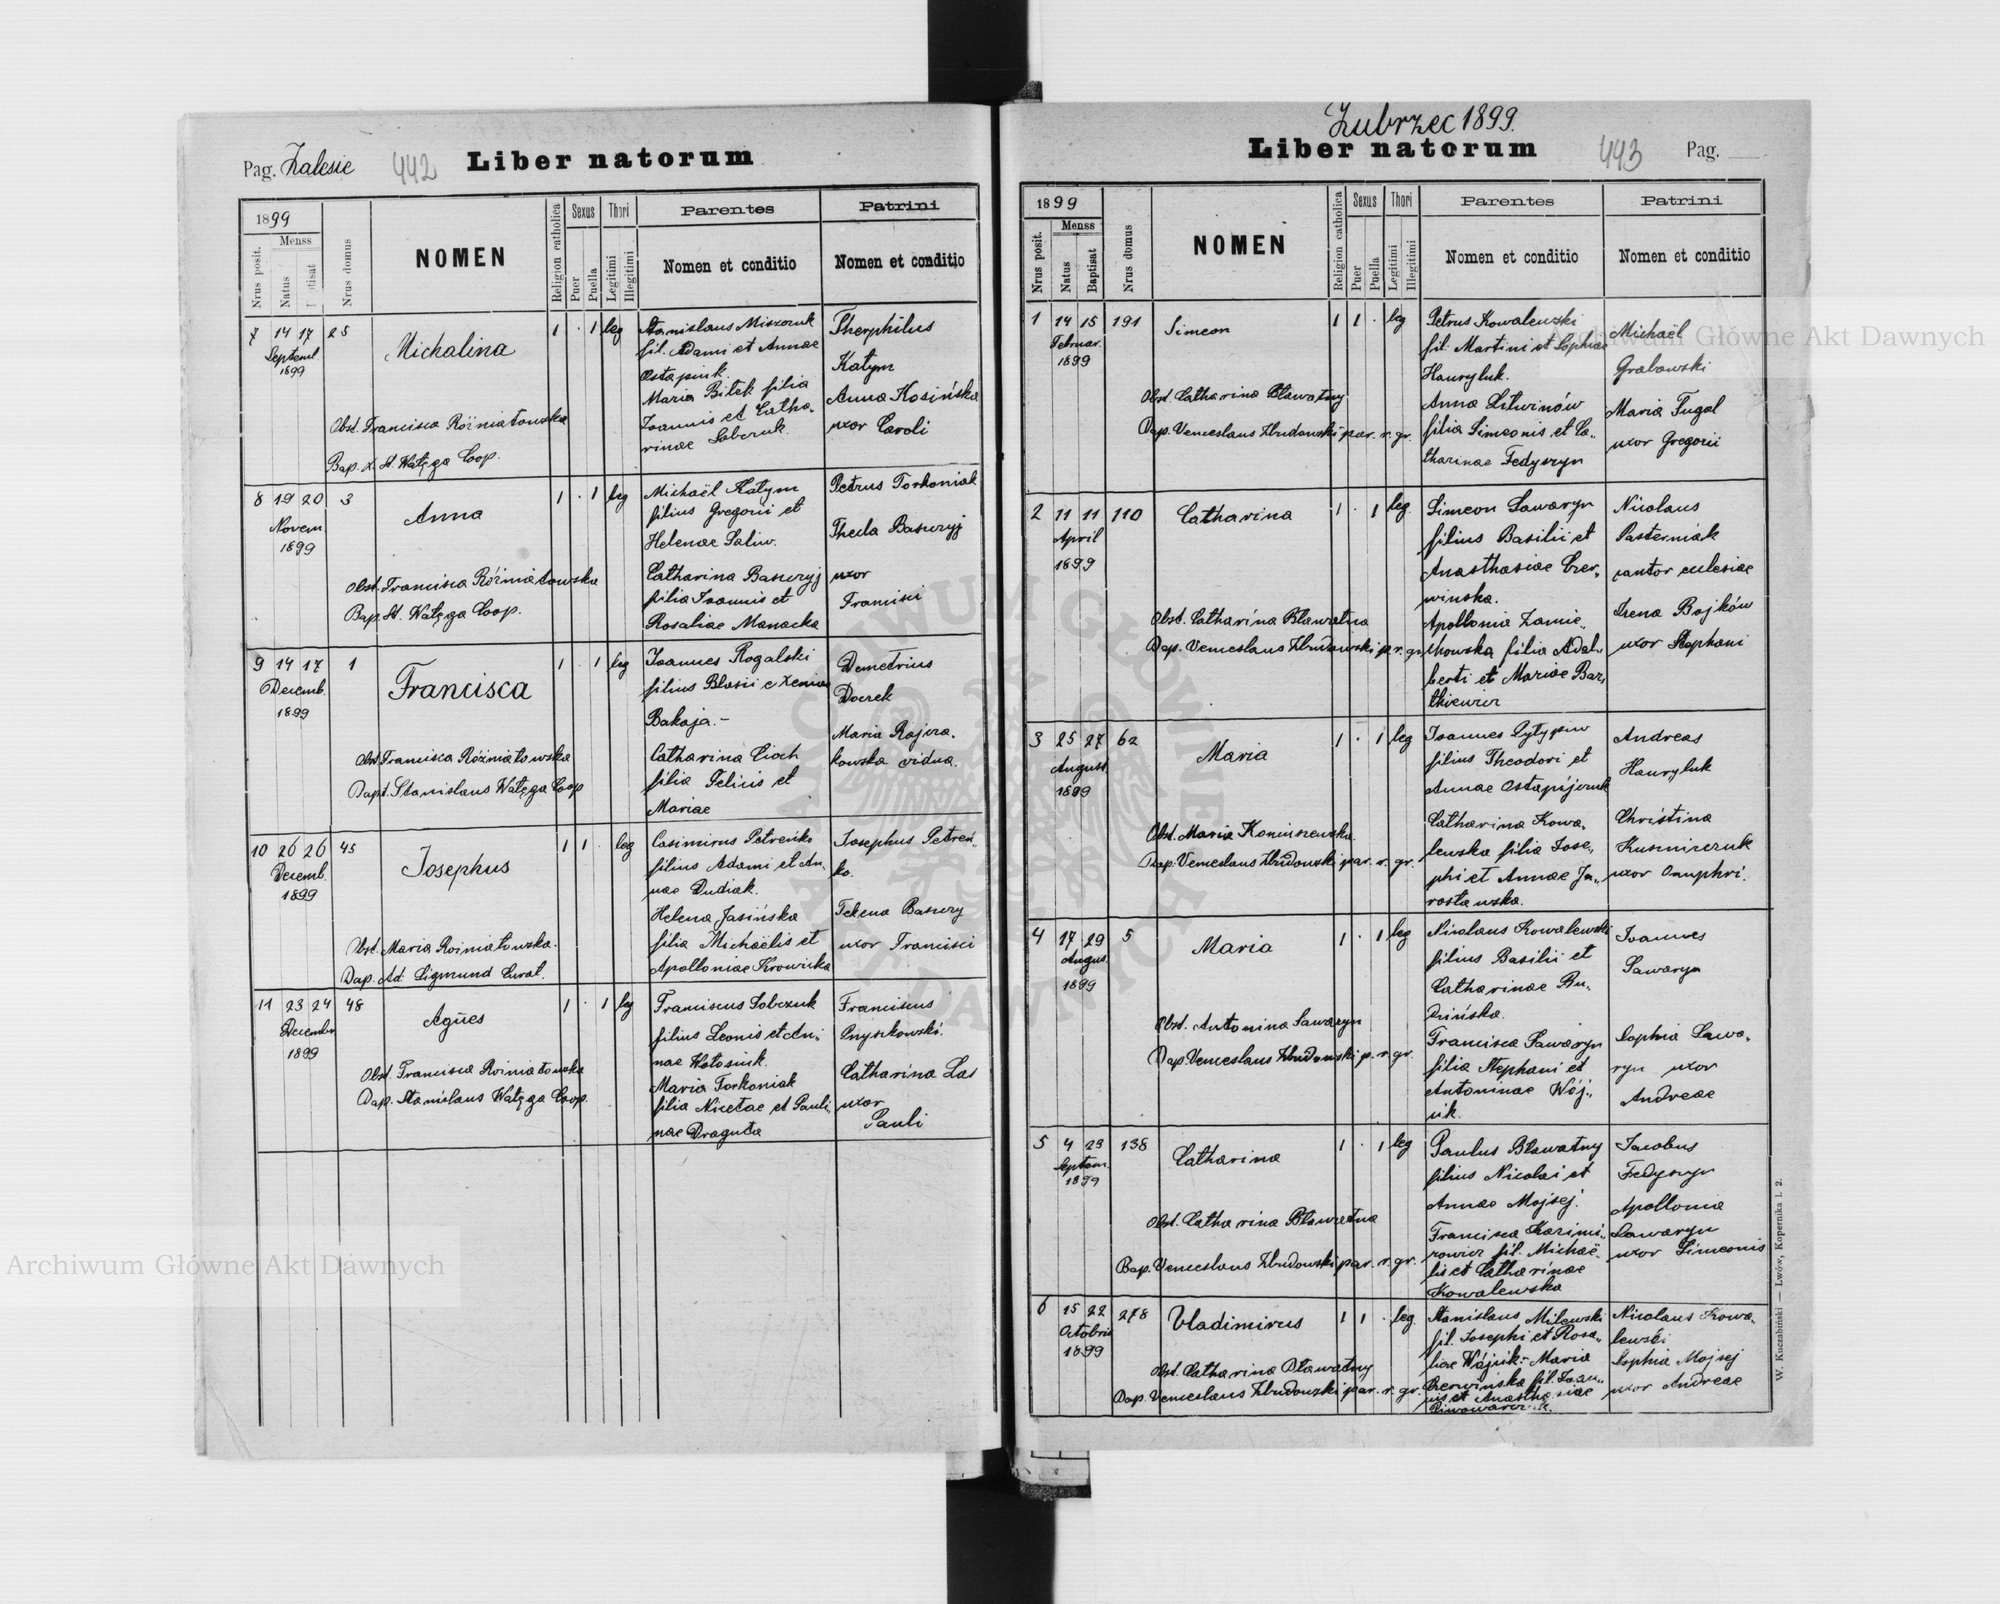 Pag. Zalesie 442 Liber natorum
1899
Nrus posit.
Menss
Natus
Nrus domus
NOMEN
Religion catholica
Sexus
Puer
Puella
Thori
Legitimi
Illegitimi
Parentes
Nomen et conditio
Patrini
Nomen et conditio
7 14 17 25
Septemb.
1899
Michalina
1 . 1 leg
Obst. Francisca Rożniatowska
Bap. X. St. Watęga Coop.
Stanislaus Miszczuk
fil. Adami et Annae
Ostapiuk.
Maria Bilek filia
Joannis et Catha,
rinae Sobczuk.
Theophilus
Katym
Anna Kosińska
uxor Caroli
8 19 20 3
Novem.
1899
Anna
1 . 1 leg
Obst. Francisca Rożniatowska
Bap. St. Watęga Coop.
Michaël Katym
filius Gregorii et
Helenae Saliw.
Catharina
filia Joannis et
Rosaliae Manacka
Petrus Torkoniak
Thecla
uxor
Francisci
9 14 17 1
Decemb.
1899
Francisca
1 . 1 leg
Obst. Francisca Rożniatowska
Bapt. Stanislaus Watęga Coop
Joannes Rogalski
filius Blasii
Bakaja.-
Catharina Cioch
filia Felicis et
Mariae
Demetrius
Maria
kowska vidua.
10 26 26 45
Decemb.
1899
Josephus
1 1 . leg
Obst. Maria Rożniatowska.
Bap. Ad. Sigmund Curat.
Casimirus Petreńko
filius Adami et An,
nae Dudiak.
Helena Jasińska
filia Michaëlis et
Apolloniae Krowicka
Josephus Petreń,
ko.
uxor Francisci
11 23 24 48
December
1899
Agnes
1 . 1 leg
Obst. Francisca Rożniatowska
Bap. Stanislaus Watęga Coop.
Franciscus Sobczuk
filius Leonis et An,
nae Wołosiuk.
Maria Torkoniak
filia Nicetae et Pauli,
nae Draguta
Franciscus
Catharina Las
uxor
Pauli
Zubrzec 1899.
Liber natorum 443 Pag.
1899
Nrus posit.
Menss
Natus
Baptisat
Nrus domus
NOMEN
Religion catholica
Sexus
Puer
Puella
Thori
Legitimi
Illegitimi
Parentes
Nomen et conditio
Patrini
Nomen et conditio
1 14 15 191
Februar.
1899
Simeon
1 1 . leg
Obst. Catharina Bławatny
Bap. Venceslaus Zbudowski par. r. gr.
Petrus Kowalewski
fil. Martini et Sophiae
Hawryluk.
Anna Litwinów
filia Simeonis et Ca,
tharinae Fedyszyn
Michaël
Grabowski
Maria Fugal
uxor Gregorii
2 11 11 110
April
1899
Catharina
1 . 1 leg.
Obst. Catharina Bławatna
Bap. Venceslaus Zbudowski p. r. gr.
Simeon Sawaryn
filius Basilii et
Anasthasiae Czer,
winska.
Apollonia Zamie,
chowska filia Adal,
berti et Mariae Bar,
Nicolaus
Pasterniak
cantor ecclesiae
Irena Bojków
uxor Stephani
3 25 27 62
August.
1899
Maria
1 . 1 leg
Obst. Maria Koniuszewska
Bap. Venceslaus Zbudowski par. r. gr.
Joannes
filius Theodori et
Annae
Catharina Kowa,
lewska filia Jose,
phi et Annae Ja,
rosławska.
Andreas
Hawryluk
Christina
Kuszniczuk
uxor Onuphri.
4 17 29 5
August
1899
Maria
1 . 1 leg
Obst. Antonina Sawaryn
Bap. Venceslaus Zbudowski p. r. gr.
Nicolaus Kowalewski
filius Basilii et
Catharinae Bu,
dzińska.
Francisca Sawaryn
filia Stephani et
Antoninae Wój,
cik.
Joannes
Sawaryn
Sophia Sawa,
ryn uxor
Andreae
5 4 23 138
Septem.
1899
Catharina
1 . 1 leg
Obst. Catharina Bławatna
Bap. Venceslaus Zbudowski par. r. gr.
Paulus Bławatny
filius Nicolai et
Annae Mojsej.
Francisca Kazimi,
rowicz fil. Michaë,
lis et Catharinae
Kowalewska
Jacobus
Fedyszyn
Apollonia
Sawaryn
uxor Simeonis
6 15 22 278
Octobris
1899
Vladimirus
1 1 . leg.
Obst. Catharina Bławatny
Bap. Venceslaus Zbudowski par. r. gr.
Stanislaus Milewski
fil. Josephi et Rosa,
liae Wójcik.- Maria
Czerwinska fil. Joan,
nis et Anasthasiae
Nicolaus Kowa,
lewski
Sophia Mojsej
uxor Andreae
W. Kuczabiński — Lwów, Kopernika l. 2.
Archiwum Główne Akt Dawnych
Archiwum Główne Akt Dawnych
ARCHIWUM GŁÓWNE AKT DAWNYCH